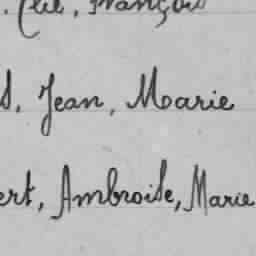 François
Jean, Marie
ert, Ambroise, Marie